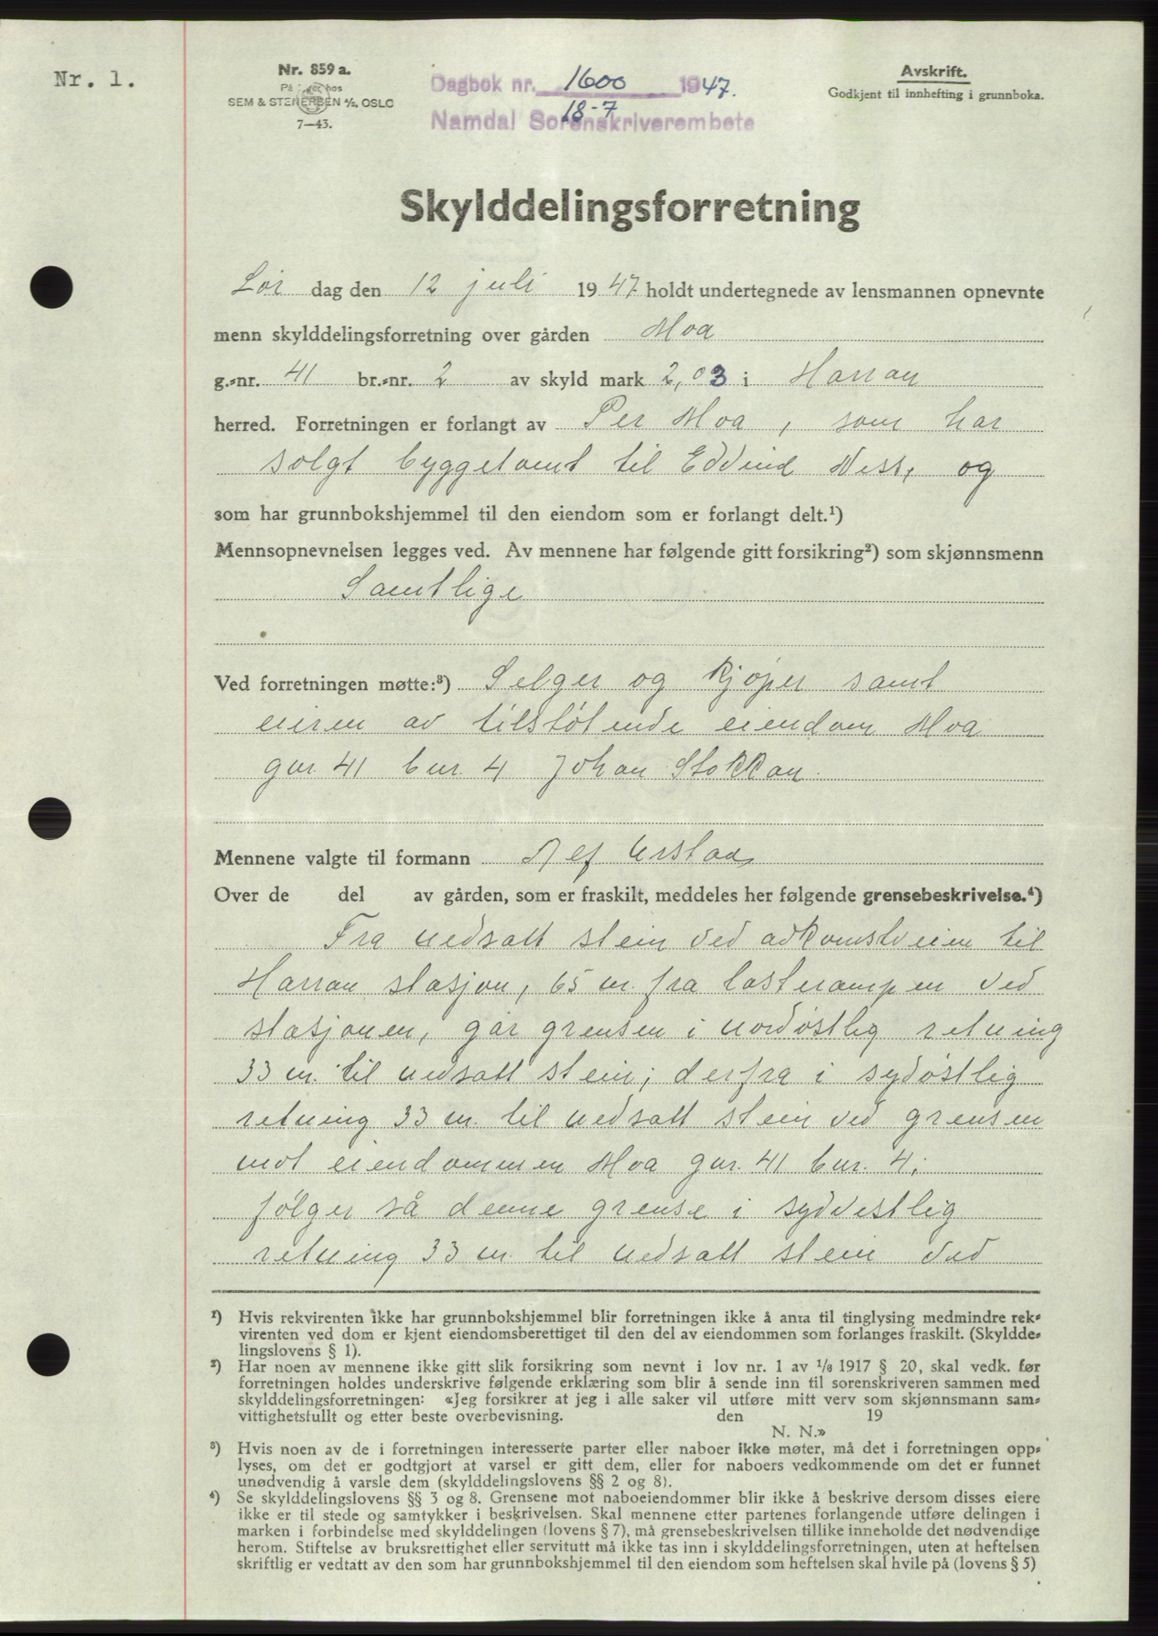 Nr. 1.
Nr. 859 a.
På lager hos
SEM & STENERSEN A/S, OSLO
7—43.
Dagbok nr. 1600 1947.
18-7
Namdal Sorenskriverembete
Avskrift.
Godkjent til innhefting i grunnboka.
Skylddelingsforretning
Lör dag den 12 juli 1947 holdt undertegnede av lensmannen opnevnte
menn skylddelingsforretning over gården Moa
g.-nr. 41 br.-nr. 2 av skyld mark 2,03 i Harran
herred. Forretningen er forlangt av Per Moa, som har
solgt byggetomt til Eddvind Ness, og
som har grunnbokshjemmel til den eiendom som er forlangt delt.¹)
Mennsopnevnelsen legges ved. Av mennene har følgende gitt forsikring²) som skjønnsmenn
Samtlige
Ved forretningen møtte:³) Selger og kjøper samt
eieren av tilstøtende eiendom Moa
gnr. 41 bnr. 4 Johan Stokkan.
Mennene valgte til formann Urstad
Over de del av gården, som er fraskilt, meddeles her følgende grensebeskrivelse.⁴)
Fra nedsatt stein ved adkomstveien til
Harran stasjon, 65 m. fra lasterampen ved
stasjonen, går grensen i nordøstlig retning
33 m. til nedsatt stein; derfra i sydøstlig
retning 33 m. til nedsatt stein ved grensen
mot eiendommen Moa gnr. 41 bnr. 4;
følger så denne grense i sydvestlig
retning 33 m. til nedsatt stein ved
¹) Hvis rekvirenten ikke har grunnbokshjemmel blir forretningen ikke å anta til tinglysing medmindre rek-
virenten ved dom er kjent eiendomsberettiget til den del av eiendommen som forlanges fraskilt. (Skyldde-
lingslovens § 1).
²) Har noen av mennene ikke gitt slik forsikring som nevnt i lov nr. 1 av 1/8 1917 § 20, skal vedk. før
forretningen holdes underskrive følgende erklæring som blir å sende inn til sorenskriveren sammen med
skylddelingsforretningen: «Jeg forsikrer at jeg i alle saker vil utføre mitt verv som skjønnsmann sam-
vittighetsfullt og etter beste overbevisning. den 19
N. N.»
³) Hvis noen av de i forretningen interesserte parter eller naboer ikke møter, må det i forretningen opp-
lyses, om det er godtgjort at varsel er gitt dem, eller for naboers vedkommende om det er funnet
unødvendig å varsle dem (skylddelingslovens §§ 2 og 8).
⁴) Se skylddelingslovens §§ 3 og 8. Grensene mot naboeiendommer blir ikke å beskrive dersom disses eiere
ikke er til stede og samtykker i beskrivelsen. Skal mennene etter partenes forlangende utføre delingen i
marken i forbindelse med skylddelingen (lovens § 7), må grensebeskrivelsen tillike inneholde det nødvendige
herom. Stiftelse av bruksrettighet eller servitutt må ikke tas inn i skylddelingsforretningen, uten at heftelsen
skriftlig er vedtatt av den som har grunnbokshjemmel til den eiendom som heftelsen skal hvile på (lovens § 5)